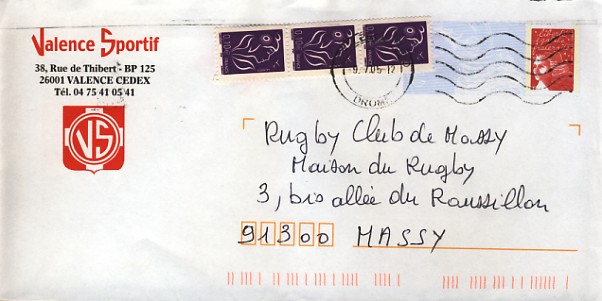 Valence Sportif
38, Rue de Thibert - BP 125
26001 VALENCE CEDEX
Tél. 04 75 41 05 41
VS
DROME
Rugby Club de Massy
Maison du Rugby
3, bis allée du Roussillon
91300 MASSY